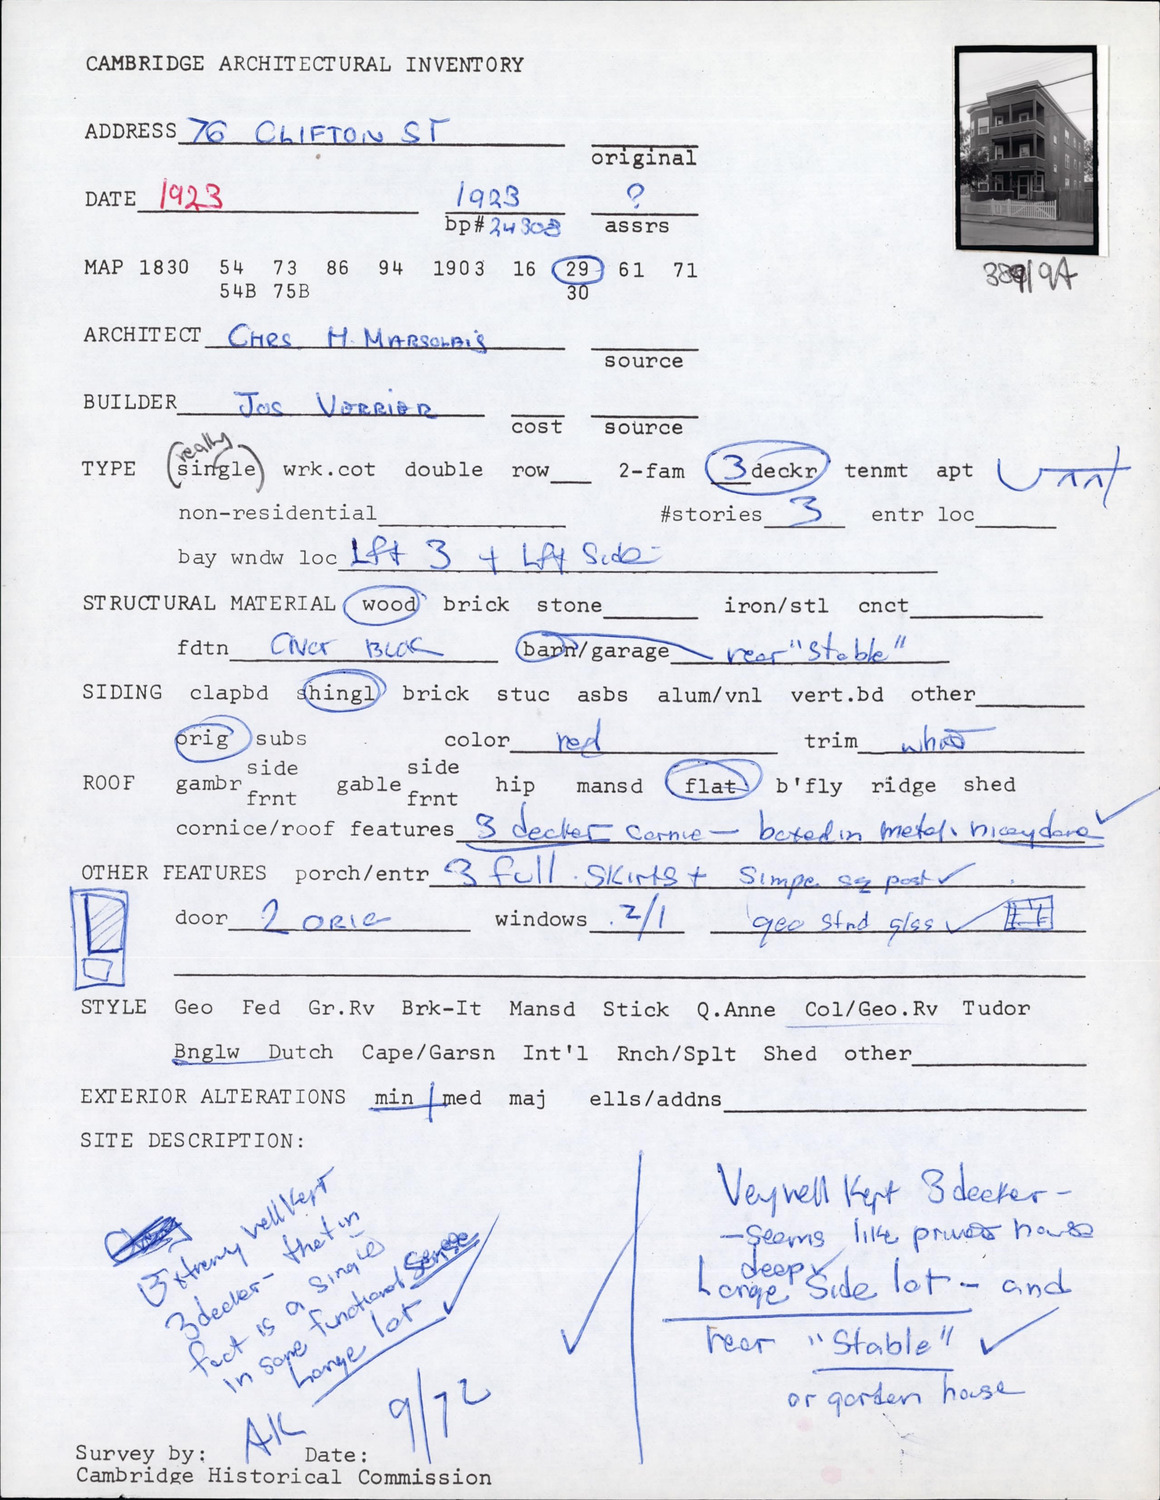 CAMBRIDGE ARCHITECTURAL INVENTORY
ADDRESS 76 CLIFTON ST
original
DATE 1923 1923 ?
bp# 24308 assrs
MAP 1830 54 73 86 94 1903 16 29 61 71
54B 75B 30
389/9A
ARCHITECT CHRS H. MARSOLAIS
source
BUILDER JOS VERRIER
cost source
really
TYPE (single) wrk.cot double row 2-fam 3 deckr tenmt apt
non-residential #stories 3 entr loc
bay wndw loc Lft 3 + Lft Side
STRUCTURAL MATERIAL wood brick stone iron/stl cnct
fdtn barn/garage rear "Stable"
SIDING clapbd shingl brick stuc asbs alum/vnl vert.bd other
orig subs color red trim
side side
ROOF gambr gable hip mansd flat b'fly ridge shed
frnt frnt
cornice/roof features 3 decker cornie — boxed in metal
OTHER FEATURES porch/entr 3 full skirts + simpe sq post
door 2 ORIG windows 2/1 geo stnd glss
STYLE Geo Fed Gr.Rv Brk-It Mansd Stick Q.Anne Col/Geo.Rv Tudor
Bnglw Dutch Cape/Garsn Int'l Rnch/Splt Shed other
EXTERIOR ALTERATIONS min med maj ells/addns
SITE DESCRIPTION:
Extremy well Kept
3 decker - that in
fact is a single
in some functional sense
Large lot
Very well Kept 3 decker -
- seems like private house
deep
Large Side lot - and
rear "Stable"
or garden house
AK 9/72
Survey by: Date:
Cambridge Historical Commission